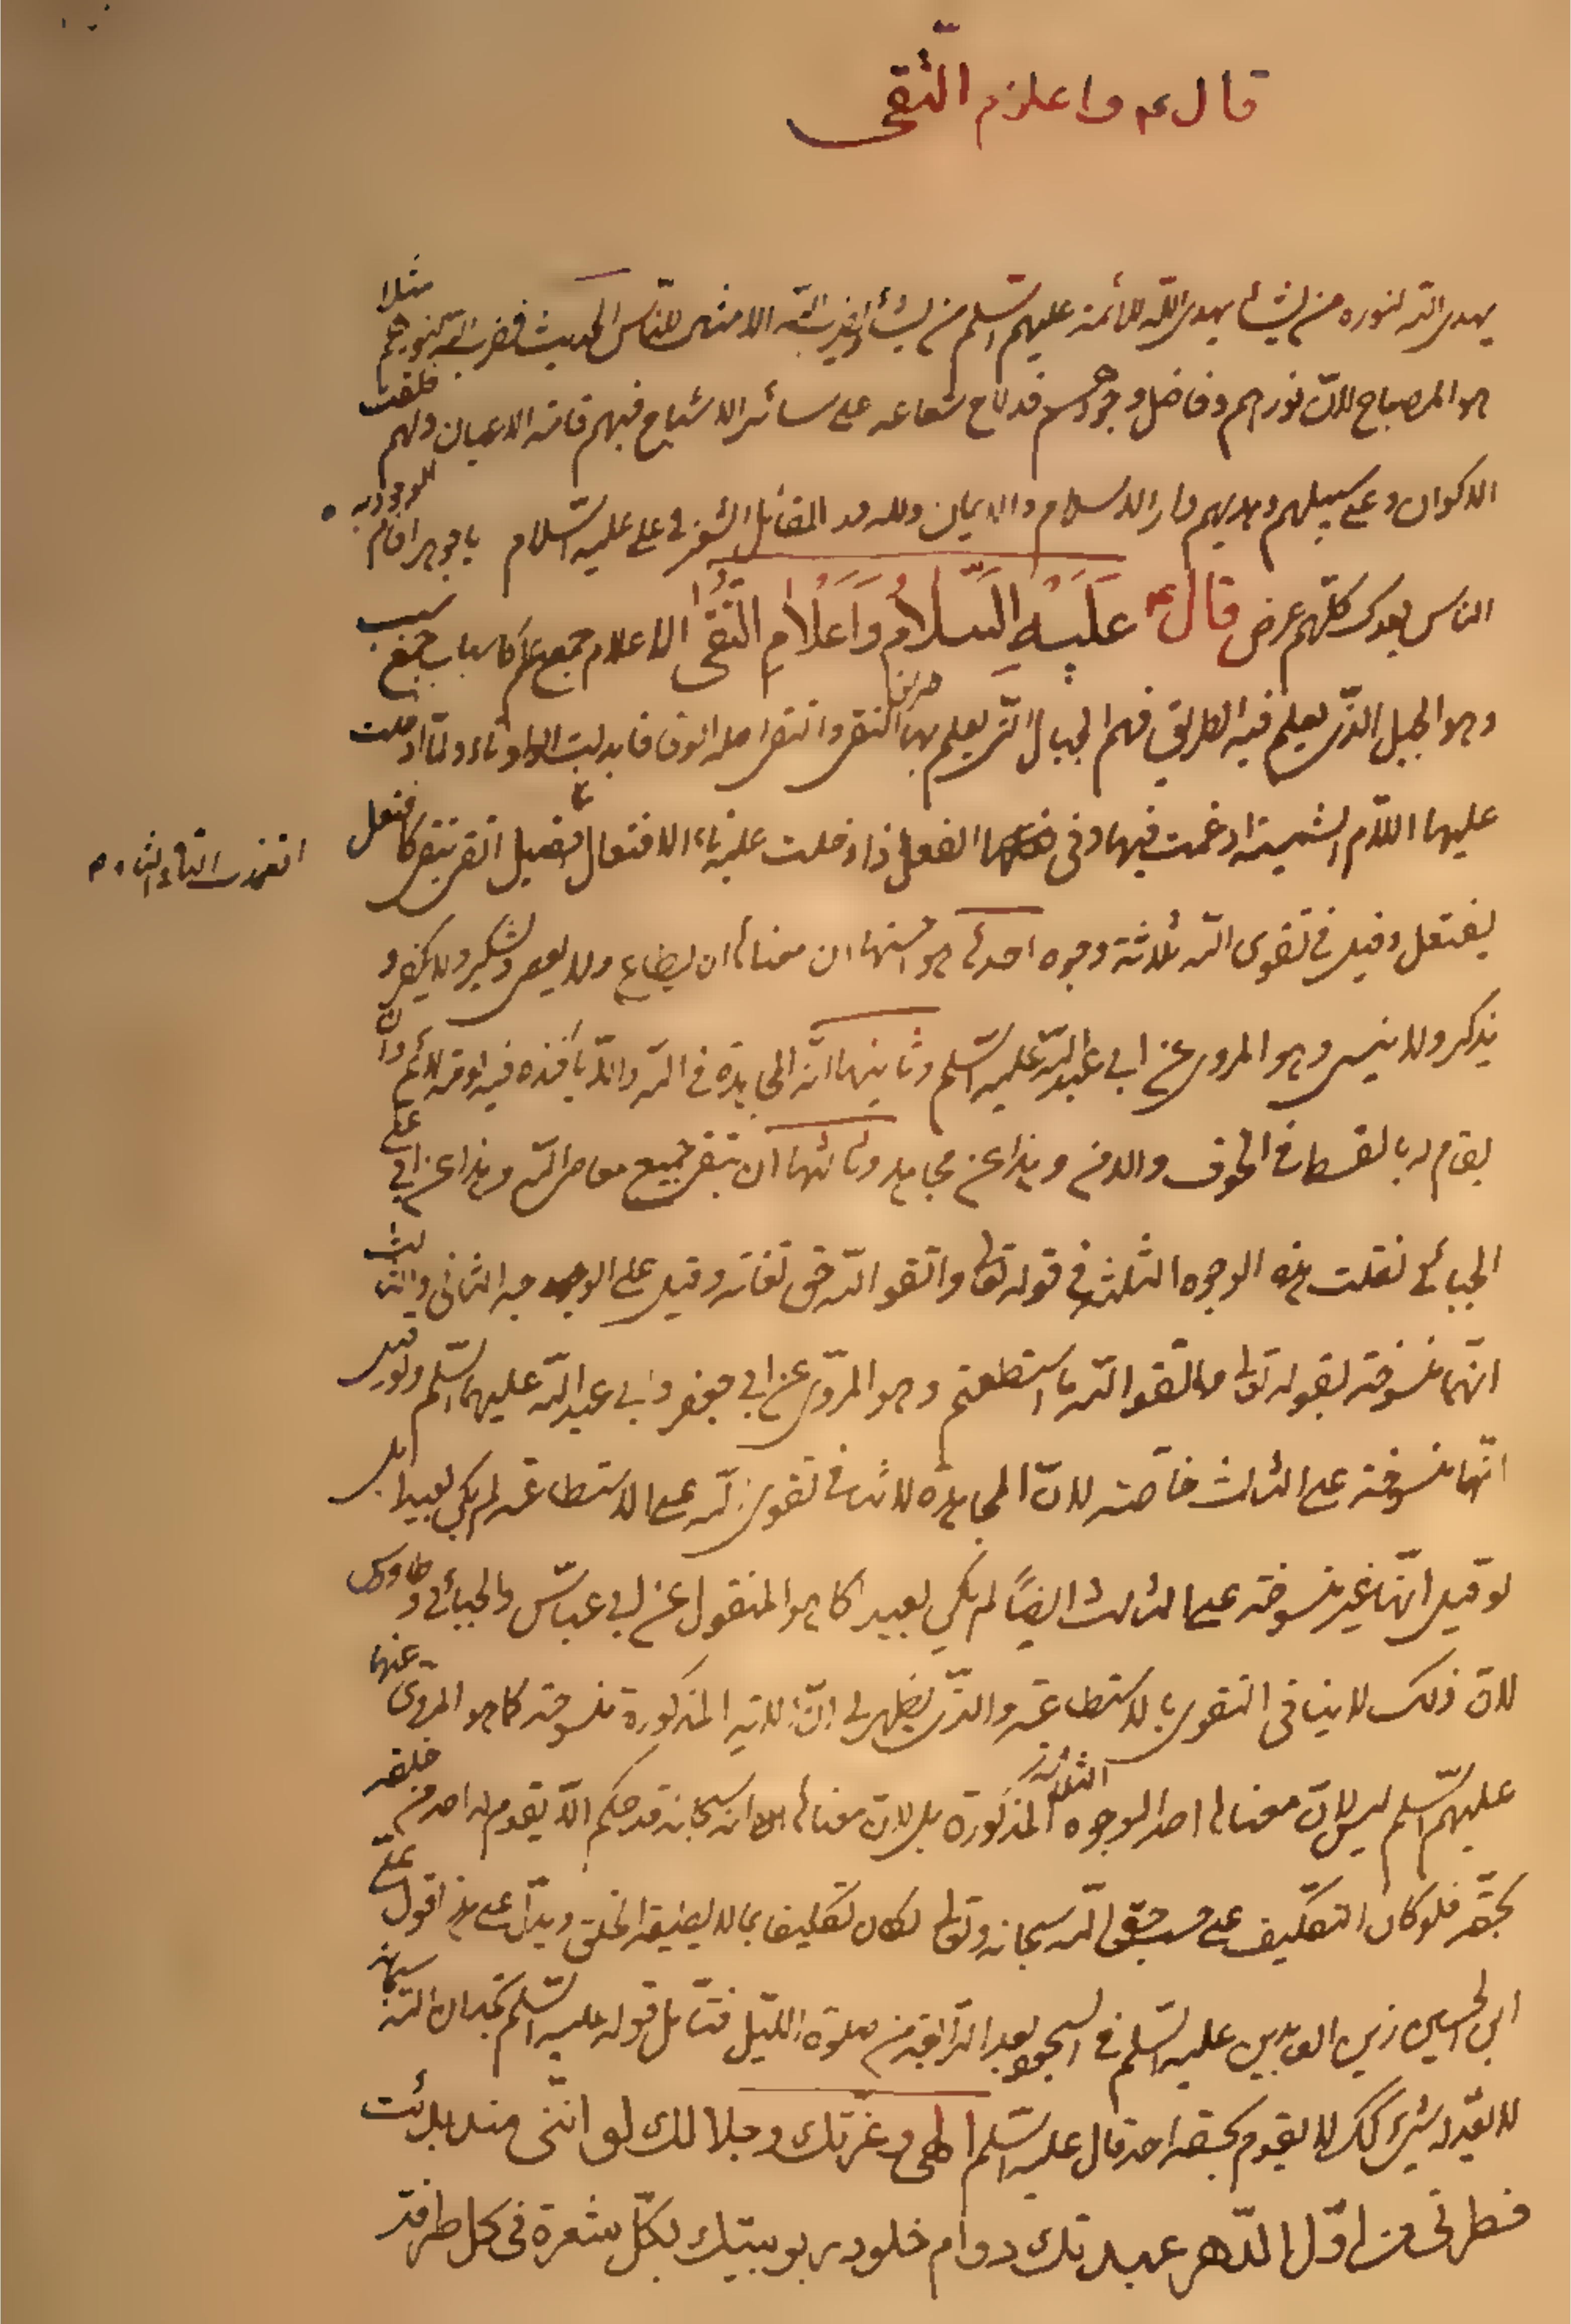 قال ع واعلام التّقى
يهدى الله لنوره من يشاء يهدى الله للأئمة عليهم السّلم من يشاء ويضرب الله الامثال للنّاس الحديث فضرب الله لنورهم مثلا
هو المصباح لانّ نورهم وفاضل وجودهم قد لاح شعاعه على سائر الاشباح فبهم قامت الاعيان ولهم خلقت
الاكوان وعلى سبيلهم وهديهم دار الاسلام والايمان ولله در القائل الشعر فى على عليه السّلام يا جوهرا قام الوجود به
الناس بعدك كلّهم عرض قال ع عَلَيْهِ السَّلامُ وَاَعَلامِ التُّقَى الاعلام جمع علم كاسباب جمع سبب
وهو الجبل الذّى يعلم فيه الطريق فهم الجبال الّتى يعلم بها طريق التقى والتقى اصله الوقى فابدلت الواو تاء ولمّا ادخلت
عليها اللّام الشمسيّة ادغمت فيها وفى الفعل اذا دخلت عليه تاء الافتعال فقيل اتّقى يتّقى كافتعل
يفتعل وقيل فى تقوى الله ثلاثة وجوه احدها وهو احسنها ان معناه ان يطاع ولا يعصى ويشكر ولا يكفر و
يذكر ولا ينسى وهو المروى عن ابى عبد الله عليه السّلم وثانيها انّه المجاهدة فى الله والّا تأخذه فيه لومة لائم وان
يقام له بالقسط فى الخوف والامن وهذا عن مجاهد وثالثها ان يتّقى جميع معاصى الله وهذا عن ابى على
الجبائى نقلت هذه الوجوه الثلثة فى قوله تعالى واتّقوا الله حق تقاته وقيل على الوجه الثانى والثالث
انّها منسوخة بقوله تعالى فاتّقوا الله ما استطعتم وهو المروّى عن ابى جعفر وابى عبد الله عليهما السّلم ولو قيل
انّها منسوخة على الثالث خاصّة لانّ المجاهدة لا تنافى تقوى الله على الاستطاعة لم يكن بعيدا بل
لو قيل انّها غير منسوخة على الثالث ايضًا لم يكن بعيدا كما هو المنقول عن ابن عباسّ والجبائى وطاوس
لانّ ذلك لا ينافى التقوى بالاستطاعة والذّى يظهر لى انّ الاية المذكورة منسوخة كما هو المروّى عنهم
عليهم السّلم ليس لانّ معناها احد الوجوه الثلاثة المذكورة بل لانّ معناها انه سبحانه قد حكم الّا يقوم له احد من خلقه
بحقّه فلو كان التّكليف على حسب حقّ الله سبحانه وتعالى لكان تكليفا بما لا يطيقه الخلق ويدلّ على هذا قول علىّ
ابن الحسين زين العابدين عليه السّلم فى السجود بعد الرّابعة من صلوة اللّيل فتأمل قوله عليه السّلم تجد ان الله سبحانه
لا يقدر له شىء كذلك لا يقوم بحقه احد قال عليه السّلم الهى وعزّتك وجلالك لو انّنى منذ بدئت
فطرتى من اوّل الدّهر عبدتك دوام خلود ربوبيّتك بكلّ شعرة فى كل طرفة